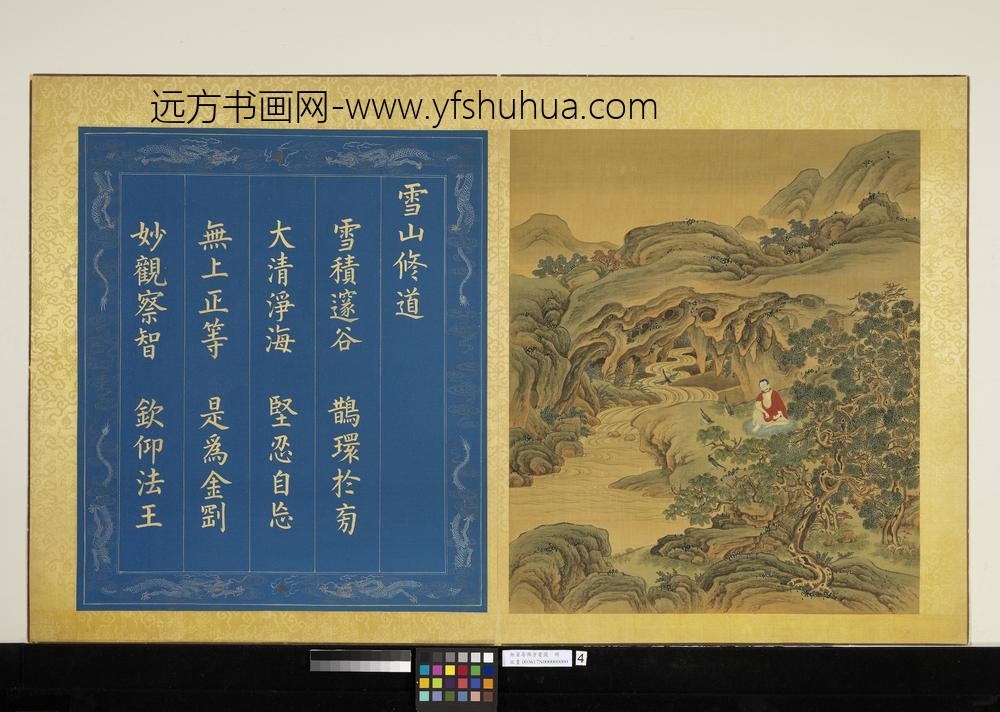 远方书画网-www.yfshuhua.com
雪山修道
雪積邃谷 鵲環於旁
大清淨海 堅忍自忘
無上正等 是為金剛
妙觀察智 欽仰法王
4